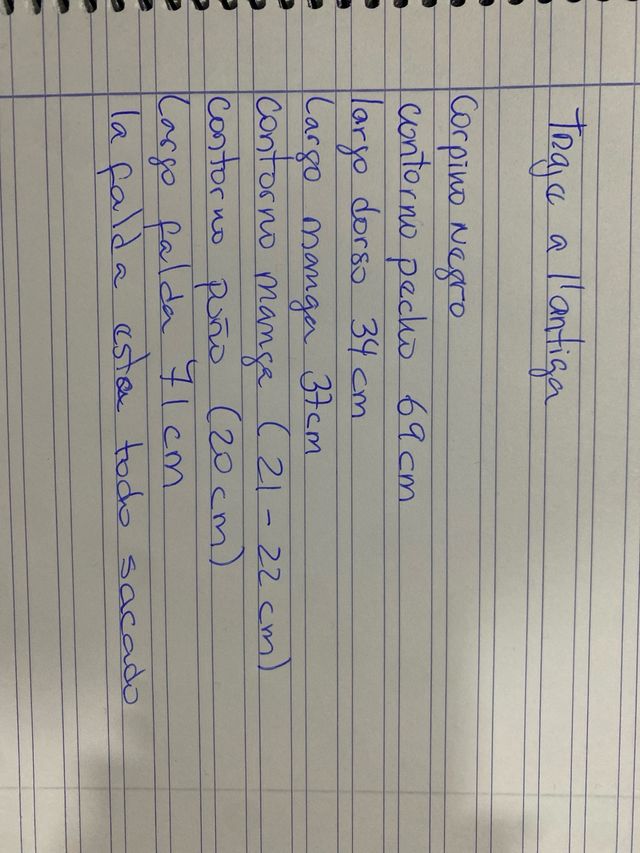 Traje a l'antiga
Corpino Negro
contorno pecho 69 cm
largo dorso 34 cm
Largo manga 37 cm
Contorno manga (21-22 cm)
Contorno puño (20 cm)
Largo falda 71 cm
la falda esta todo sacado